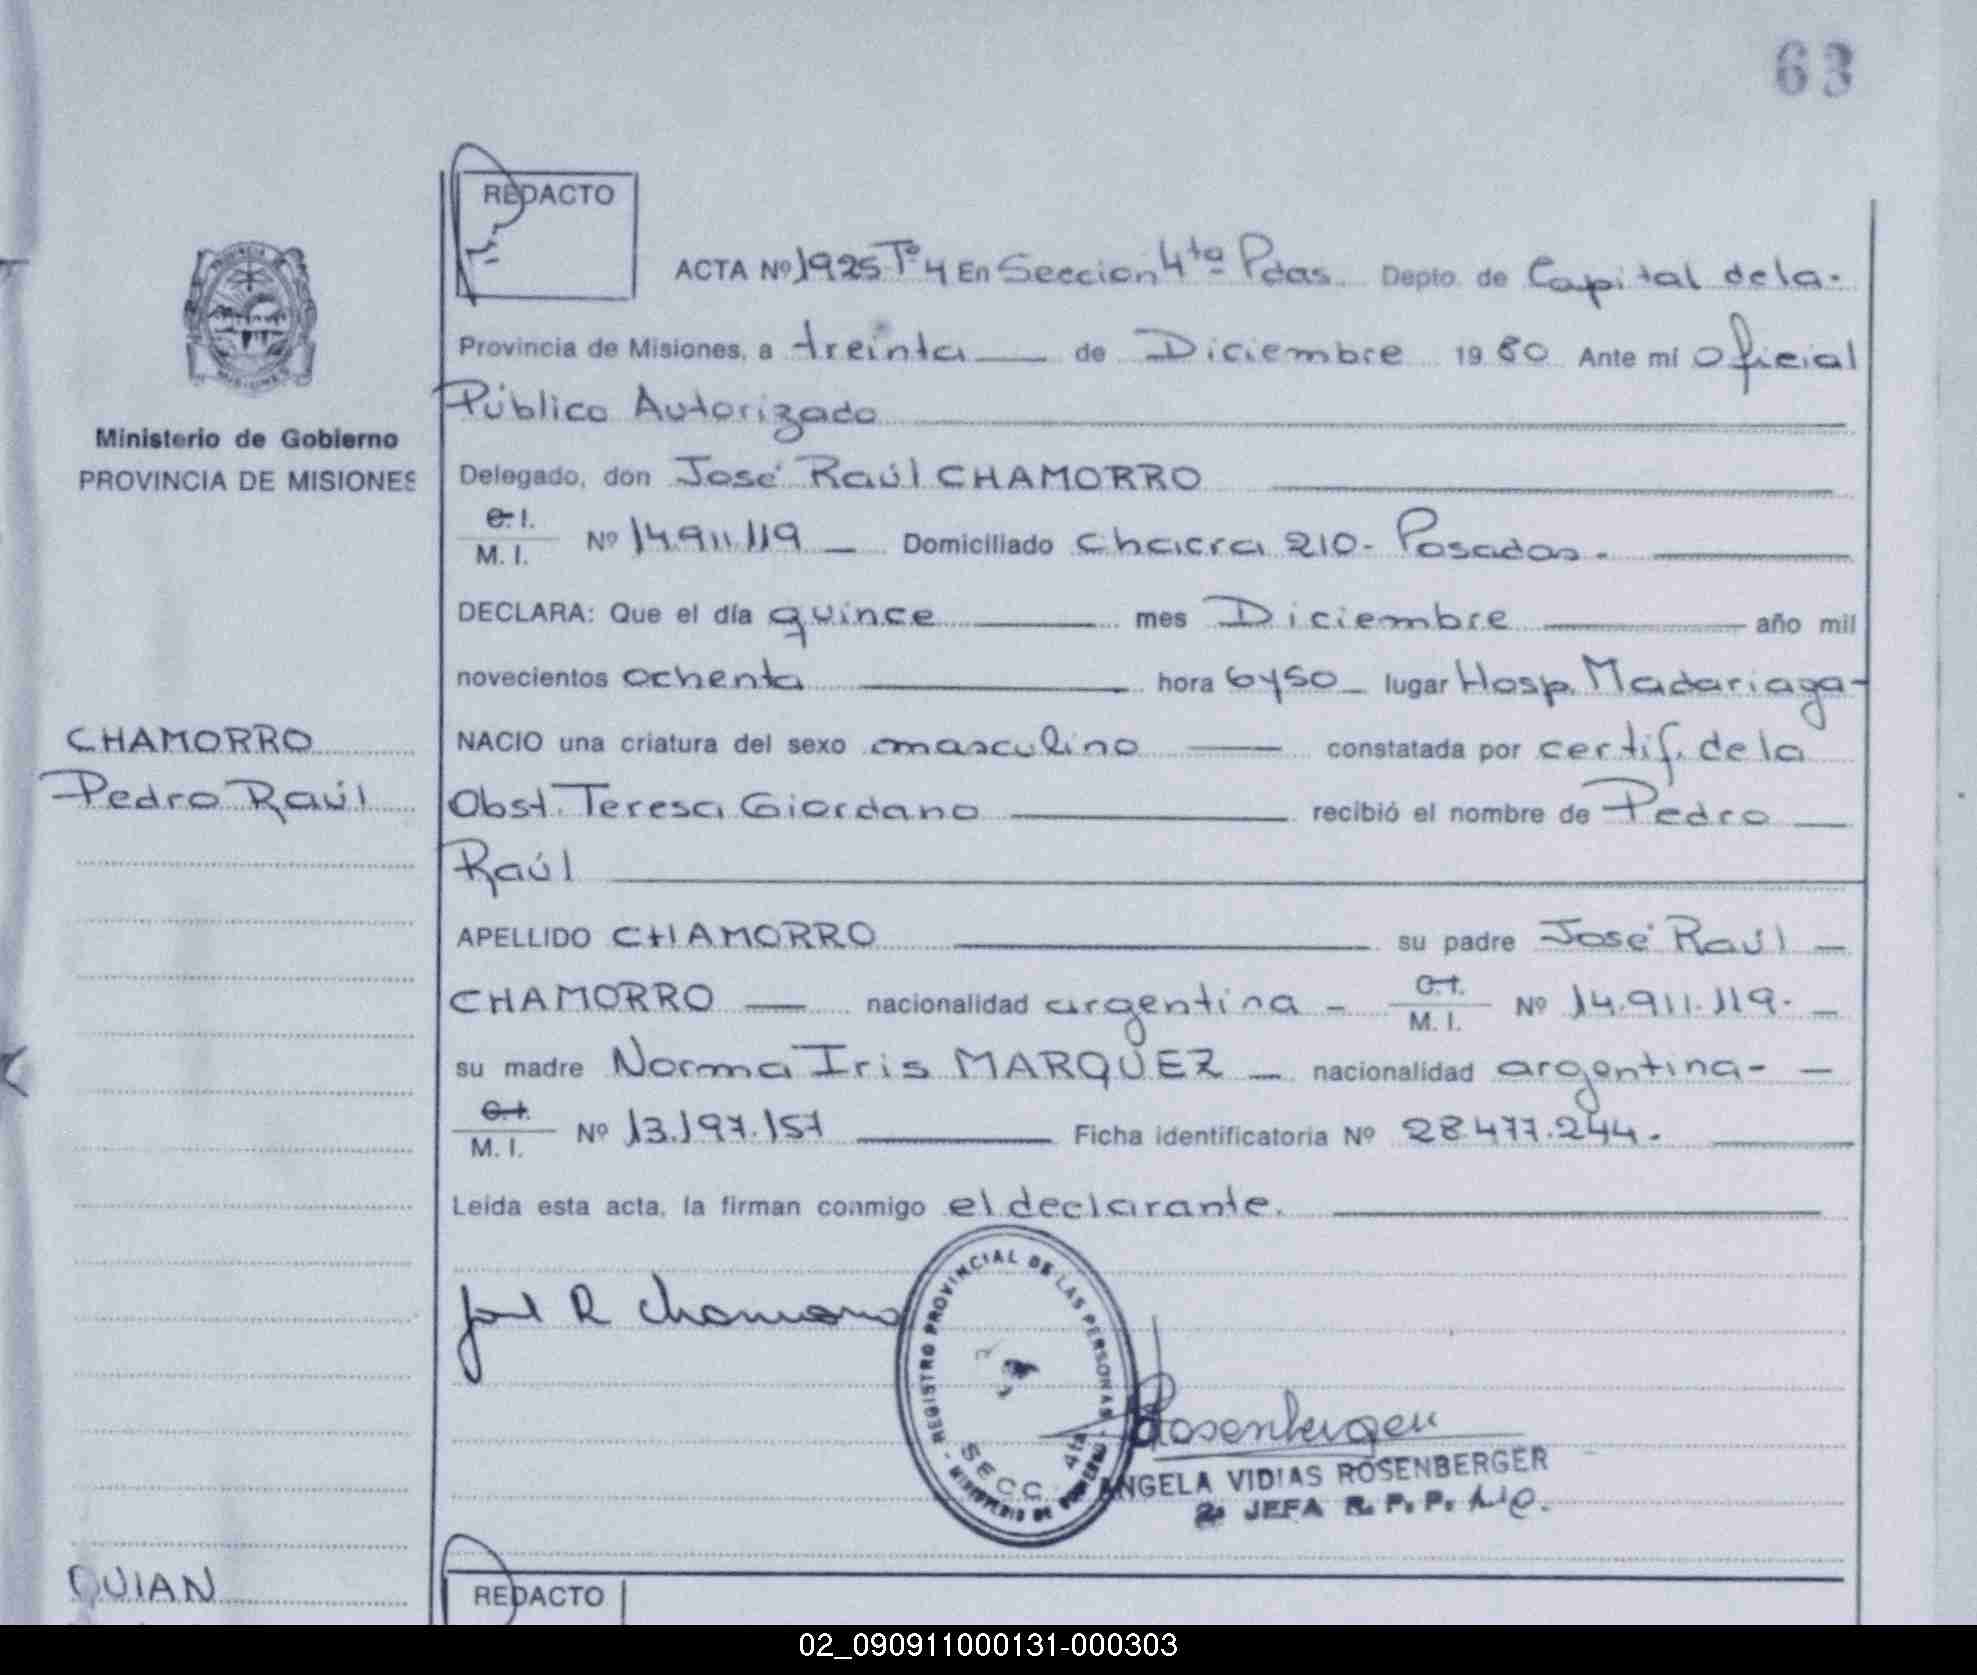 63
REDACTO
ACTA Nº 1925 Tº 4 En Seccion 4ta Pdas. Depto. de Capital de la.
Provincia de Misiones, a treinta — de Diciembre 19 80 Ante mí Oficial
Público Autorizado
Ministerio de Gobierno
PROVINCIA DE MISIONES
Delegado, don José Raúl CHAMORRO
C. I.
M. I. Nº 14.911.119 — Domiciliado Chacra 210 - Posadas.
DECLARA: Que el día quince — mes Diciembre — año mil
novecientos ochenta — hora 6 y 50 — lugar Hosp. Madariaga -
CHAMORRO
Pedro Raúl
NACIO una criatura del sexo masculino — constatada por certif. de la
Obst. Teresa Giordano — recibió el nombre de Pedro —
Raúl
APELLIDO CHAMORRO — su padre José Raúl —
CHAMORRO — nacionalidad argentina - C. I.
M. I. Nº 14.911.119. —
su madre Norma Iris MARQUEZ — nacionalidad argentina - —
C. I.
M. I. Nº 13.197.157 — Ficha identificatoria Nº 28.477.244.
Leída esta acta, la firman conmigo el declarante.
José R Chamorro
REGISTRO PROVINCIAL DE LAS PERSONAS - MINISTERIO DE GOBIERNO -
SECC. 4ta
Rosenberger
ANGELA VIDIAS ROSENBERGER
2ª JEFA R. P. P.
QUIAN
REDACTO
02_090911000131-000303